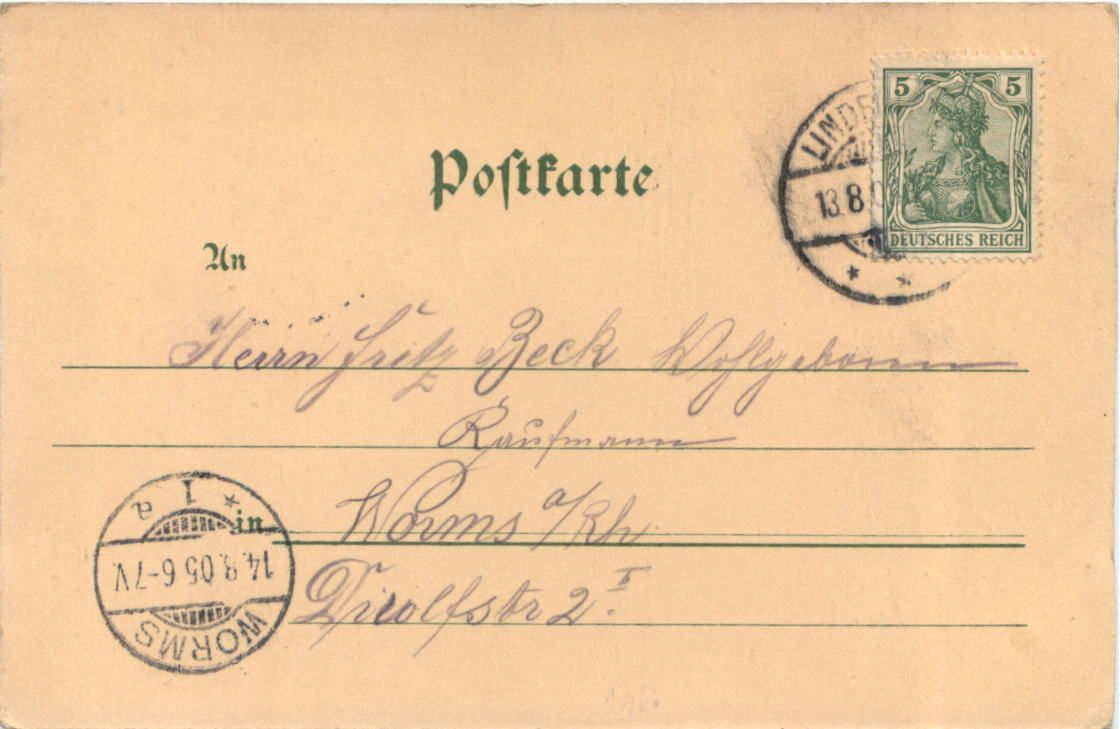 5 5
DEUTSCHES REICH
13.8.0
Postkarte
An
Herrn Fritz Beck Wohlgeboren
Kaufmann
in Worms a/Rh
2 I
WORMS
14.8.05 6-7V.
* 1 a